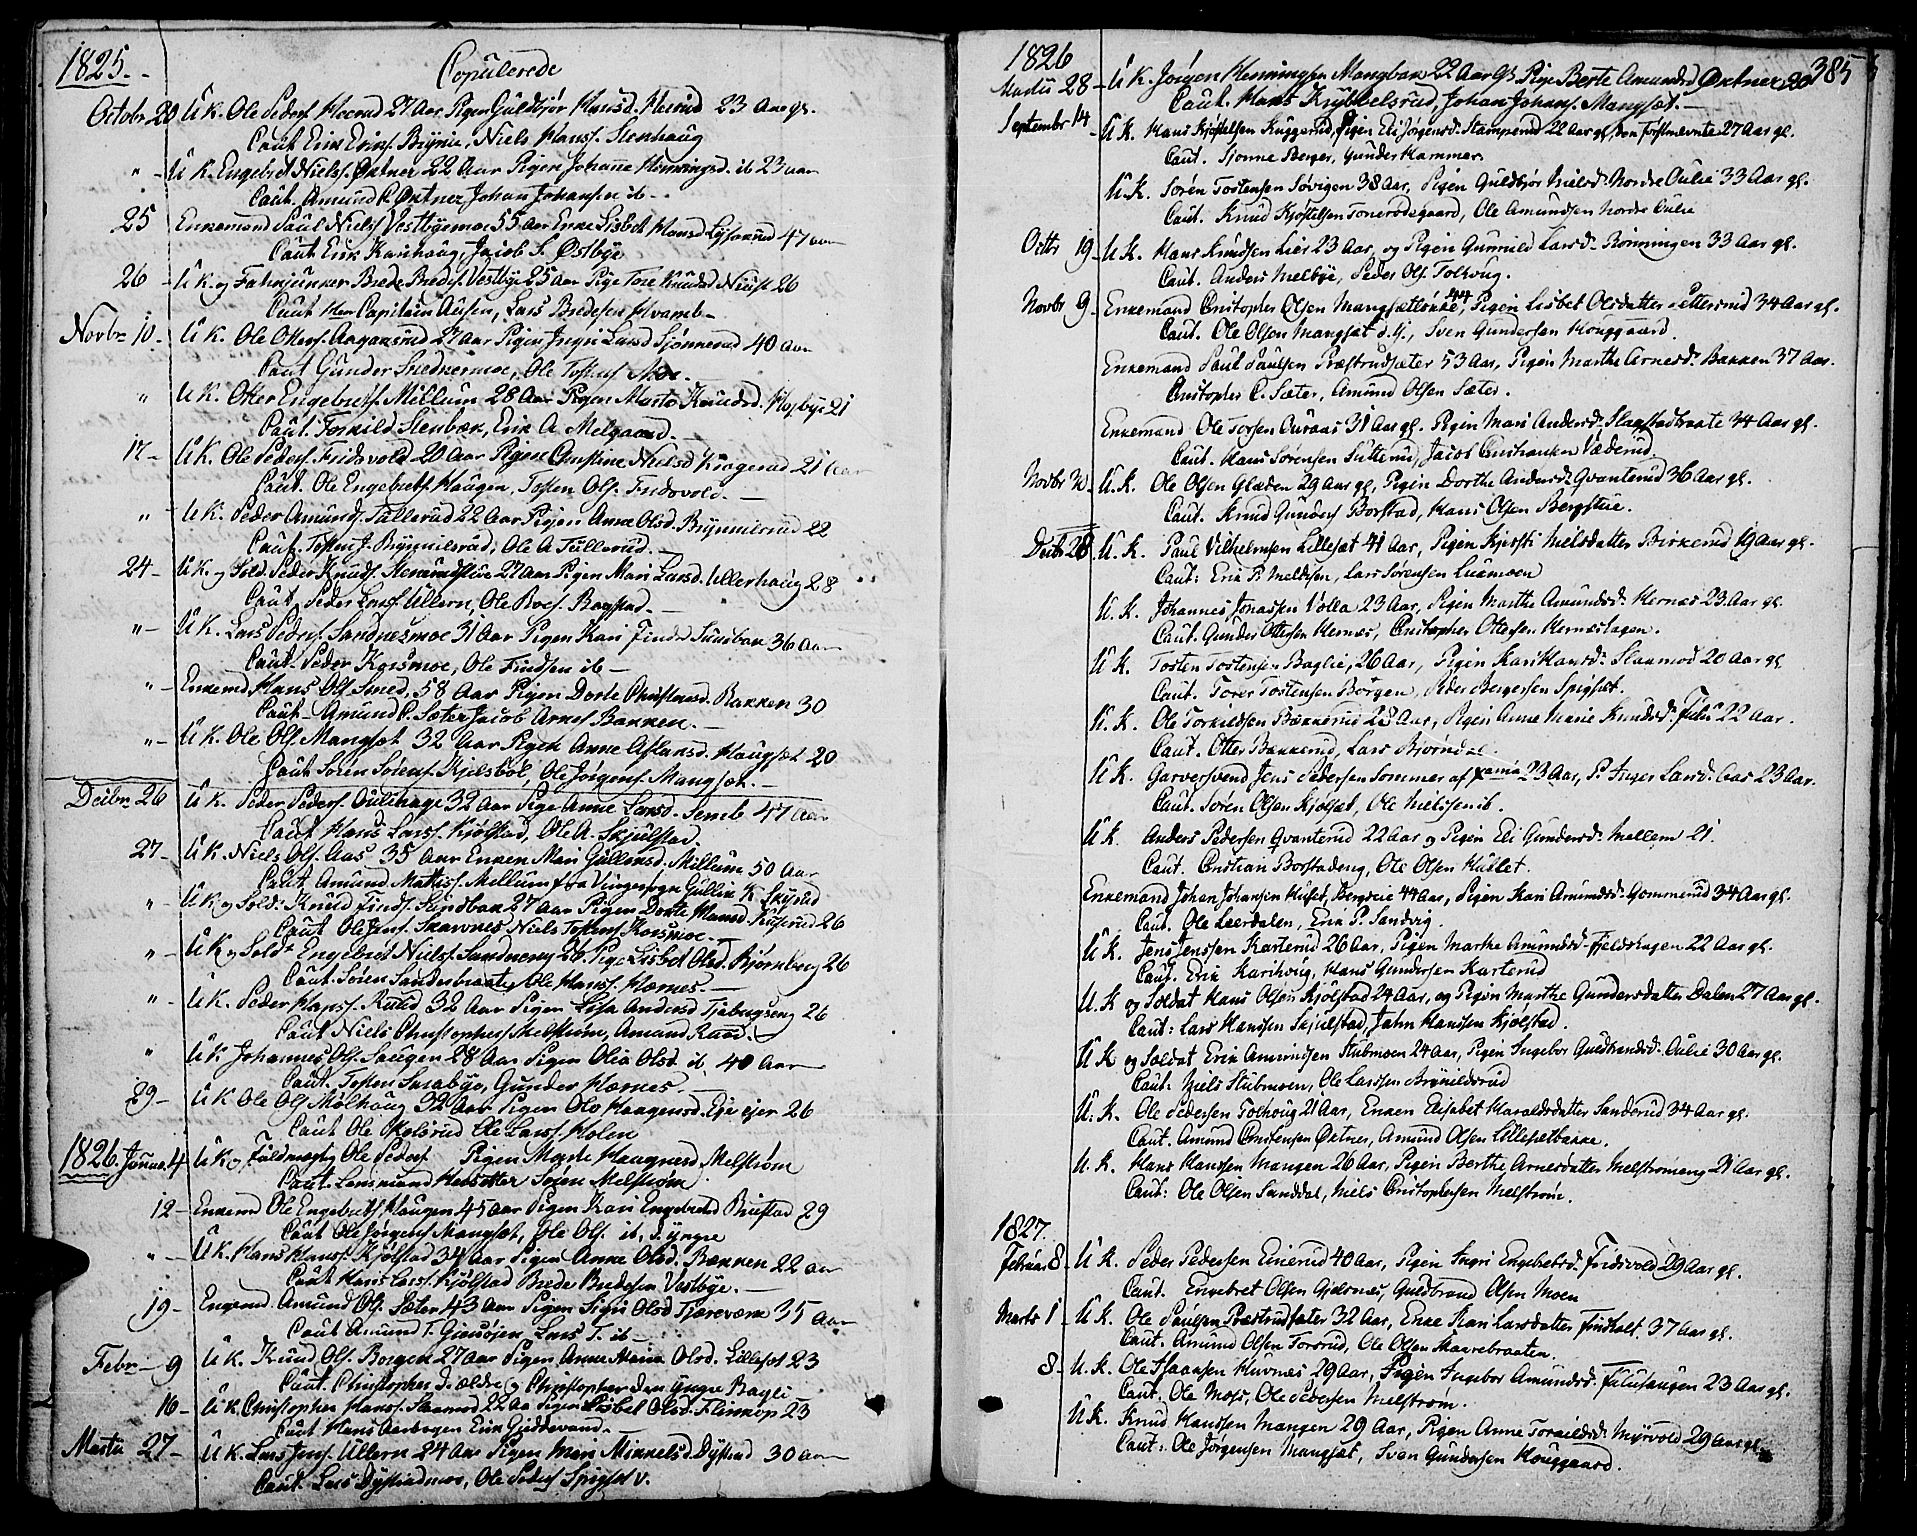 1825.
Copulerede
Octobr 20 U K. Ole Peders. Hoerud 27 Aar Pigen Guldbjør Hansd. Hoerud 23 Aar gl.
Caut Erik Eriks. Brynie, Niels Hans. Stenhaug
" - U K. Engebret Niels. Øxtner 22 Aar Pigen Johane Henningsd. ib 23 aar
Caut. Amund C. Øxtner Johan Johansen ib -
25 Enkemand Paul Niels. Vestbyemoe 55 Aar Enke Lisbet Hansd 47 aar
Caut Erik Karihaug, Jacob S. Østbye
26 - U K. og Fahnjunker Brede Bredes. Vestbye 25 Aar Pige Tore Knudsd 26
Caut Herr Capitain Ausen, Lars Bredesen Kvamb -
Novbr 10 - U K. Ole Otters. Aagaarsrud 27 Aar Pigen Ingri Larsd Sjønnerud 40 Aar
Caut Gunder Snednermoe, Ole Tostens. Moe.
" U K. Otter Engebrets. Millum 28 Aar Pigen Marte Knudsd. Højbye 21
Caut. Torkild Stenbæk, Erik A Melgaard.
17 - U K. Ole Peders. Fridsvold 20 Aar Pigen Christine Nielsd Kragerud 21 Aar
Caut. Ole Engebrets. Haugen, Tosten Ols. Fridsvold. -
" - U K. Peder Amunds. Tullerud 22 Aar Pigen Anne Olsd. Brynnilsrud 22
Caut. Tosten J. Brynnilsrud, Ole A Tullerud. -
24 - U K. og Sold. Peder Knuds. 27 Aar Pigen Mari Larsd. Ullerhaug 28
Caut. Peder Lars. Ullern, Ole Boes. Bogstad. -
" - U K. Lars Peders. Sandnesmoe 31 Aar Pigen Kari Finds Sundbak 36 Aar
Caut. Peder Korsmoe, Ole Findsen ib -
" - Enkemd. Hans Ols. Smed, 58 Aar Pigen Dorte Christensd. Bakken 30
Caut - Amund C. Sæter Jacob Arnes. Bakken. -
" - U K. Ole Ols. Mangset 32 Aar Pigen Anne Aslansd. Haugset 20
Caut Sørен Sørens. Kjelsbøl, Ole Jørgens. Mangset. -
Decbr 26 U K. Peder Peders. Oulihage 32 Aar Pige Anne Larsd. Semb 47 Aar
Caut Hans Lars. Kjølstad, Ole A. Skjulstad.
27 - U K. Niels Ols. Aas 35 Aar Enken Mari Gullensd. Millum 50 Aar
Caut Amund Mattiss. Mellum fra Vingersogn Gullik K.
" U K og Sold: Knud Finds. Sundbak 27 Aar Pigen Dorte Hansd 26
Caut Ole Jens. Skavnes Niels Tostens. Korsmoe -
" - U K og Soldt Engebret Niels. Sandneseng 26 Pige Lisbet Olsd. Bjørnberg 26
Caut. Søren Sanderbraaten Ole Hans. Hærnes. -
" - U K. Peder Hans. Ruud 32 Aar Pigen Lisa Andersd Tjabergseng 26
Caut Niels Christophers. Melstrøm, Amund Ruud.
" U K Johannes Ols. Haugen 28 Aar Pigen Olia Olsd. ib. 40 Aar
Caut. Tosten Surabye, Gunder Hærnes. -
29 - U K Ole Ols. Mølhaug 32 Aar Pigen Olo Haagensd. Eje ejer 26
Caut Ole Skolsrud Ole Lars. Holen
1826. Januar. 4 U K og Fuldmægtig Ole Peders. Pigen Marte Haagensd Melstrøm
Caut. Lensmand Sørен Melstrøm
12 - Enkemd Ole Engebrets. Haugen 45 Aar Pigen Kari Engebretsd 29
Caut Ole Jørgens. Mangset, Ole Ols. ib, d. yngre
" - U K. Hans Hans. Kjølstad 34 Aar Pigen Anne Olsd. Bækken 22 aar
Caut Hans Lars. Kjølstad Brede Bredesen Vestbye. -
19 - Enkemd. Amund Ols. Sæter 43 Aar Pigen Sigri Olsd Tjæreværk 35 Aar
Caut Amund T. Giersøjen Lars T. ib -
Febr - 9 U K. Knud Ols. Borgen 27 Aar Pigen Anne Maria Olsd. Lilleset 23
Caut. Christopher d. ældre og Christopher den yngre Bagli
16 - U K. Christopher Hans. Slaamod 22 Aar Pigen Lisbet Olsd. Flinkop 23
Caut Hans Aarbogen Erik Gieddevand -
Martii 27 - U K. Lars Jens. Ullern 24 Aar Pigen Mari Mikkelsd. Dystrud 30 Aar
Caut Lars Dystrudmoe, Ole Peders. Spigset V.
385
1826
Martii 28 - U K. Jørgen Henningsen Mangbak 22 Aar gl. Pige Berte Amundsd. Øxtner 20
Caut. Hans Krybbelsrud, Johan Johans. Mangset. -
Septembr 14 U K. Hans Kjøstelsen Kuggerud, Pigen Eli Jørgensd. Stamperud 22 Aar gl, den førstnævnte 27 Aar gl.
Caut. Sjønne Berger, Gunder Kammer.
U. K. Soren Tostensen Søvigen 38 Aar, Pigen Guldbjør Nielsd. Nordre Oulie 33 Aar gl.
Caut. Knud Kjøstelsen Tonerødegaard, Ole Amundsen Nordre Oulie
Octbr 19 - U. K. Hans Knudsen Lier 23 Aar, og Pigen Gunnild Larsd. Rønningen 33 Aar gl.
Caut. Anders Melbye, Peder Ols. Tolhoug.
Novbr 9 - Enkemand Christopher Olsen Mangsetbakke 44, Pigen Lisbet Olsdatter Pettersrud 34 Aar gl.
Caut. Ole Olsen Mangset d. y., Sven Gundersen Houggaard
Enkemand Paul Paulsen Præstrudsæter 53 Aar, Pigen Marthe Arnesd. Bakken 37 Aar.
Christopher C. Sæter, Amund Olsen Sæter.
Enkemand Ole Torsen Ouraas 31 Aar gl. Pigen Mari Andersd. Slaastadbraate 44 Aar gl.
Caut. Hans Sørensen Sutterud, Jacob Christiansen Væderud
Novbr 30. U. K. Ole Olsen Glæden 29 Aar gl, Pigen Dorthe Andersd. Qvanterud 36 Aar gl.
Caut. Knud Gunders. Borstad, Hans Olsen Bergstue.
Decbr 28 U. K. Paul Vilhelmsen Lilleset 41 Aar, Pigen Kjersti Nielsdatter Birkerud 19 Aar gl.
Caut: Erik P. Meldsen, Lars Sørensen Luumoen
U. K. Johannes Jonassen Volla 23 Aar, Pigen Marthe Amundsd. Hernæs 23. Aar gl.
Caut. Gunder Ottersen Hernæs, Christopher Ottersen Hernæshagen.
U K. Tosten Tostensen Baglie, 26 Aar, Pigen Kari Hansd. Slaamod 20 Aar gl
Caut. Torer Tostensen Borgen, Peder Bergersen Spigset.
U. K. Ole Torkildsen Bækkerud 28 Aar, Pigen Anne Marie Knudsd. Fulu 22 Aar.
Caut. Otter Bækkerud, Lars Bjørndal.
U K. Garversvend Jens Pedersen Sommer af Xania 23 Aar, P. Inger Larsd. Aas 23 Aar.
Caut. Søren Olsen Kjølset, Ole Nielsen ib.
U K. Anders Pedersen Qvanterud 22 Aar og Pigen Eli Gundersd. Mellem 21.
Caut. Christian Borstadeng, Ole Olsen Hullet.
Enkemand Johan Johansen Huset, Bergseie 44 Aar, Pigen Kari Amundsd. Gommerud 34 Aar gl.
Caut. Ole Leerdalen, Erik P. Sandvig.
U K. Jens Jenssen Karterud 26 Aar, Pigen Marthe Amundsd. Fjeldshagen 22 Aar gl.
Caut. Erik Karihoug, Hans Gundersen Karterud
U. K og Soldat Hans Olsen Kjølstad 24 Aar, og Pigen Marthe Gundersdatter Dalen 27 Aar gl.
Caut: Lars Hanssen Skjulstad, Jahn Hanssen Kjølstad.
U K og Soldat Erik Amundsen Stubmoen 24 Aar, Pigen Ingebor Guldbrandsd. Oulie 30 Aar gl.
Caut: Niels Stubmoen, Ole Larssen Brynildsrud
U. K. Ole Pedersen Tolhoug 21 Aar, Enken Elisabet Haraldsdatter Sanderud 34 Aar gl.
Caut. Amund Christensen Øxtner, Amund Olsen Lillesetbakke.
U. K. Hans Hanssen Mangen 26 Aar, Pigen Berthe Arnesdatter Melstrømeng 21 Aar gl.
Caut: Ole Olsen Sanddal, Niels Christophersen Melstrøm.
1827.
Februar 8 - U K. Peder Pedersen Einerud 40 Aar, Pigen Ingri Engebretsd. Fridsvold 29 Aar gl.
Caut. Engebret Olsen Gjelsnæs, Guldbrand Olsen Moen
Marts 1 - U K. Ole Paulsen Præstrudsæter 32 Aar, Enke Kari Larsdatter Finholt. 37 Aar gl.
Caut. Amund Olsen Torsrud, Ole Olsen Skarrebraaten.
8 - U. K. Ole Haansen Huvnæs 29 Aar, Pigen Ingebor Amundsd. Fuluhaugen 23 Aar gl.
Caut. Ole Moss, Ole Pedersen Melstrøm.
U K. Knud Hanssen Mangen 29 Aar, Pigen Anne Torkildsd. Myrvold 29 Aar gl.
Caut: Ole Jørgensen Mangset, Sven Gundersen Houggaard.